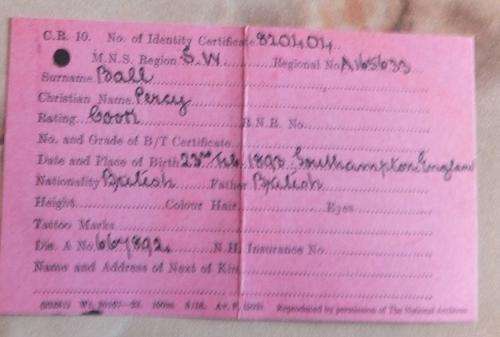 C.R. 10. No. of Identity Certificate 8204014
M.N.S. Region S.W. Regional No A165633
Surname Ball
Christian Name Percy
Rating Cook R.N.R. No.
No. and Grade of B/T Certificate
Date and Place of Birth 22nd Feb 1892 Southampton England
Nationality British Father British
Height Colour Hair Eyes
Tattoo Marks
Dis. A No. 667892 N.H. Insurance No.
Name and Address of Next of Kin
Reproduced by permission of The National Archives